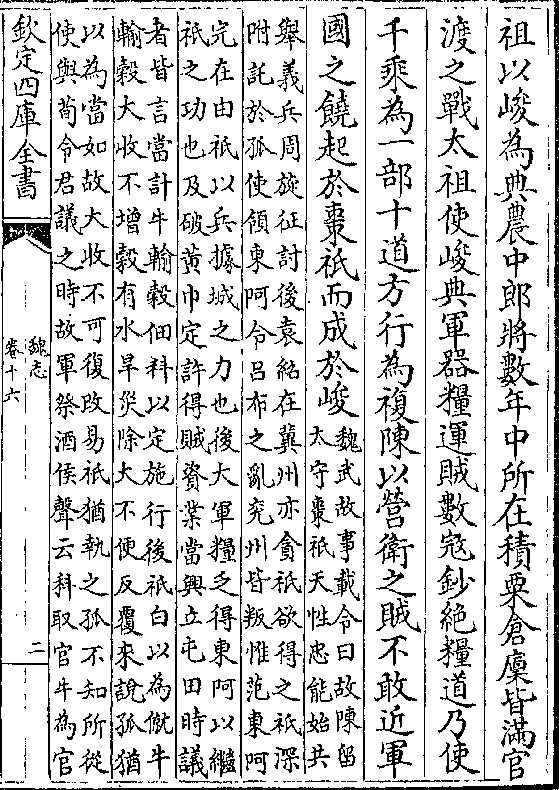 祖以峻為典農中郎將數年中所在積粟倉廩皆滿官
渡之戰太祖使峻典軍器糧運賊數寇鈔絕糧道乃使
千乘為一部十道方行為複陳以營衛之賊不敢近軍
國之饒起於棗祗而成於峻
魏武故事載令曰故陳留
太守棗祗天性忠能始共
舉義兵周旋征討後袁紹在冀州亦貪祗欲得之祗深
附託於孤使領東阿令呂布之亂兖州皆叛惟范東阿
完在由祗以兵據城之力也後大軍糧乏得東阿以繼
祗之功也及破黃巾定許得賊資業當興立屯田時議
者皆言當計牛輸穀佃科以定施行後祗白以為僦牛
輸穀大收不增穀有水旱災除大不便反覆來說孤猶
以為當如故大收不可復改易祗猶執之孤不知所從
使與荀令君議之時故軍祭酒侯聲云科取官牛為官
欽定四庫全書
魏志
卷十六
二